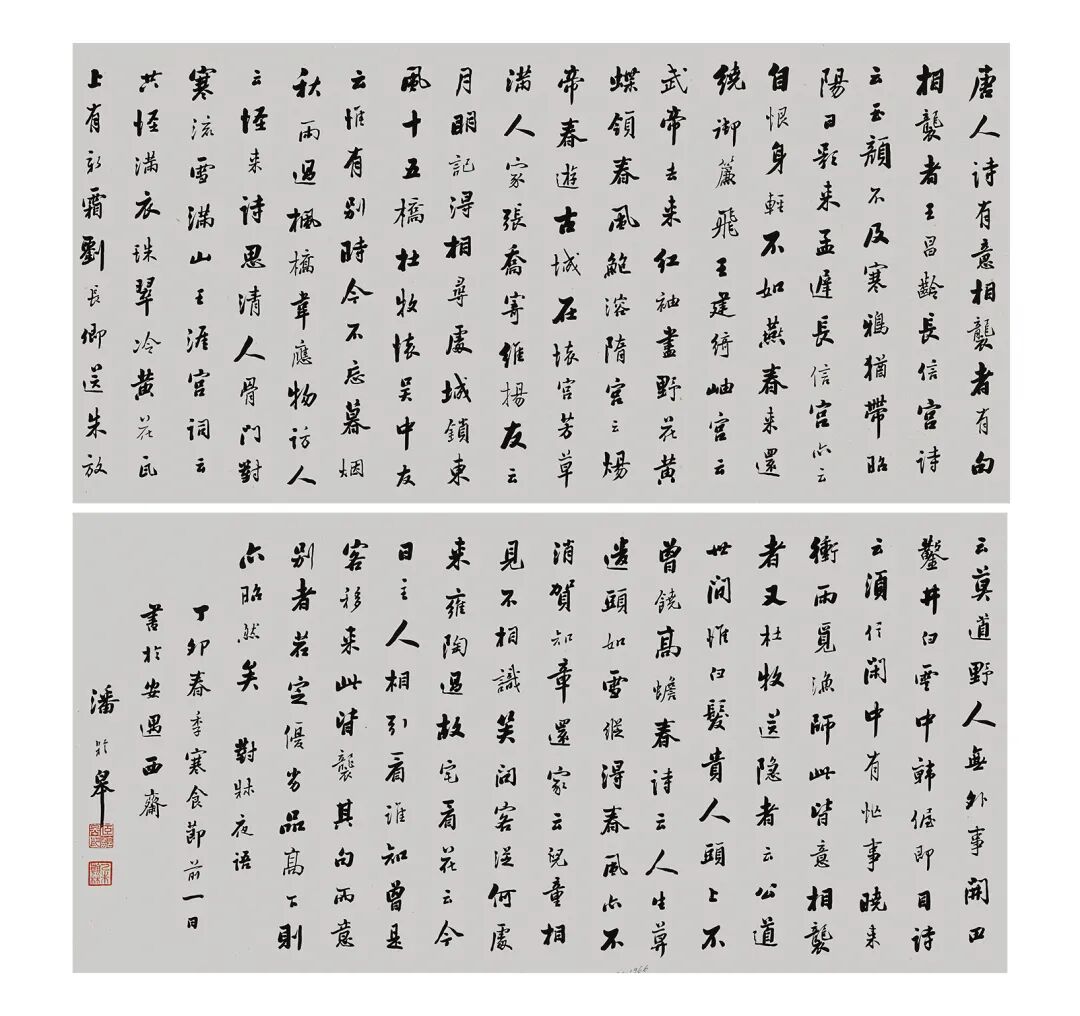 唐人诗有意相襲者有句
相襲者王昌齡長信宮詩
云玉顏不及寒鴉猶帶昭
陽日影来孟遲長信宮亦云
自恨身輕不如燕春来還
繞御簾飛王建綺岫宮云
武帝去来红袖盡野花黄
蝶領春風鮑溶隋宮云煬
帝春遊古城在壞宮芳草
满人家張喬寄维揚友云
月明記得相尋處城鎖東
風十五橋杜牧懐吴中友
云惟有别時今不忘暮烟
秋雨過楓橋韋應物訪人
云怪来詩思清人骨門對
寒流雪满山王涯宮词云
共怪满衣珠翠冷黄花瓦
上有新霜劉長卿送朱放
云莫道野人無外事開田
鑿井白雲中韩偓即目诗
云須信閑中有忙事曉来
衝雨覓漁師此皆意相襲
者又杜牧送隐者云公道
世間惟白髮貴人頭上不
曾饒高蟾春詩云人生莫
遣頭如雪縱得春風亦不
消賀知章還家云兒童相
見不相識笑问客從何處
来雍陶過故宅看花云今
日主人相引看誰知曾是
客移来此皆襲其句而意
别者若定優劣品高下則
亦昭然矣 對牀夜語
丁卯春季寒食節前一日
書於安遇西齋
潘龄皋